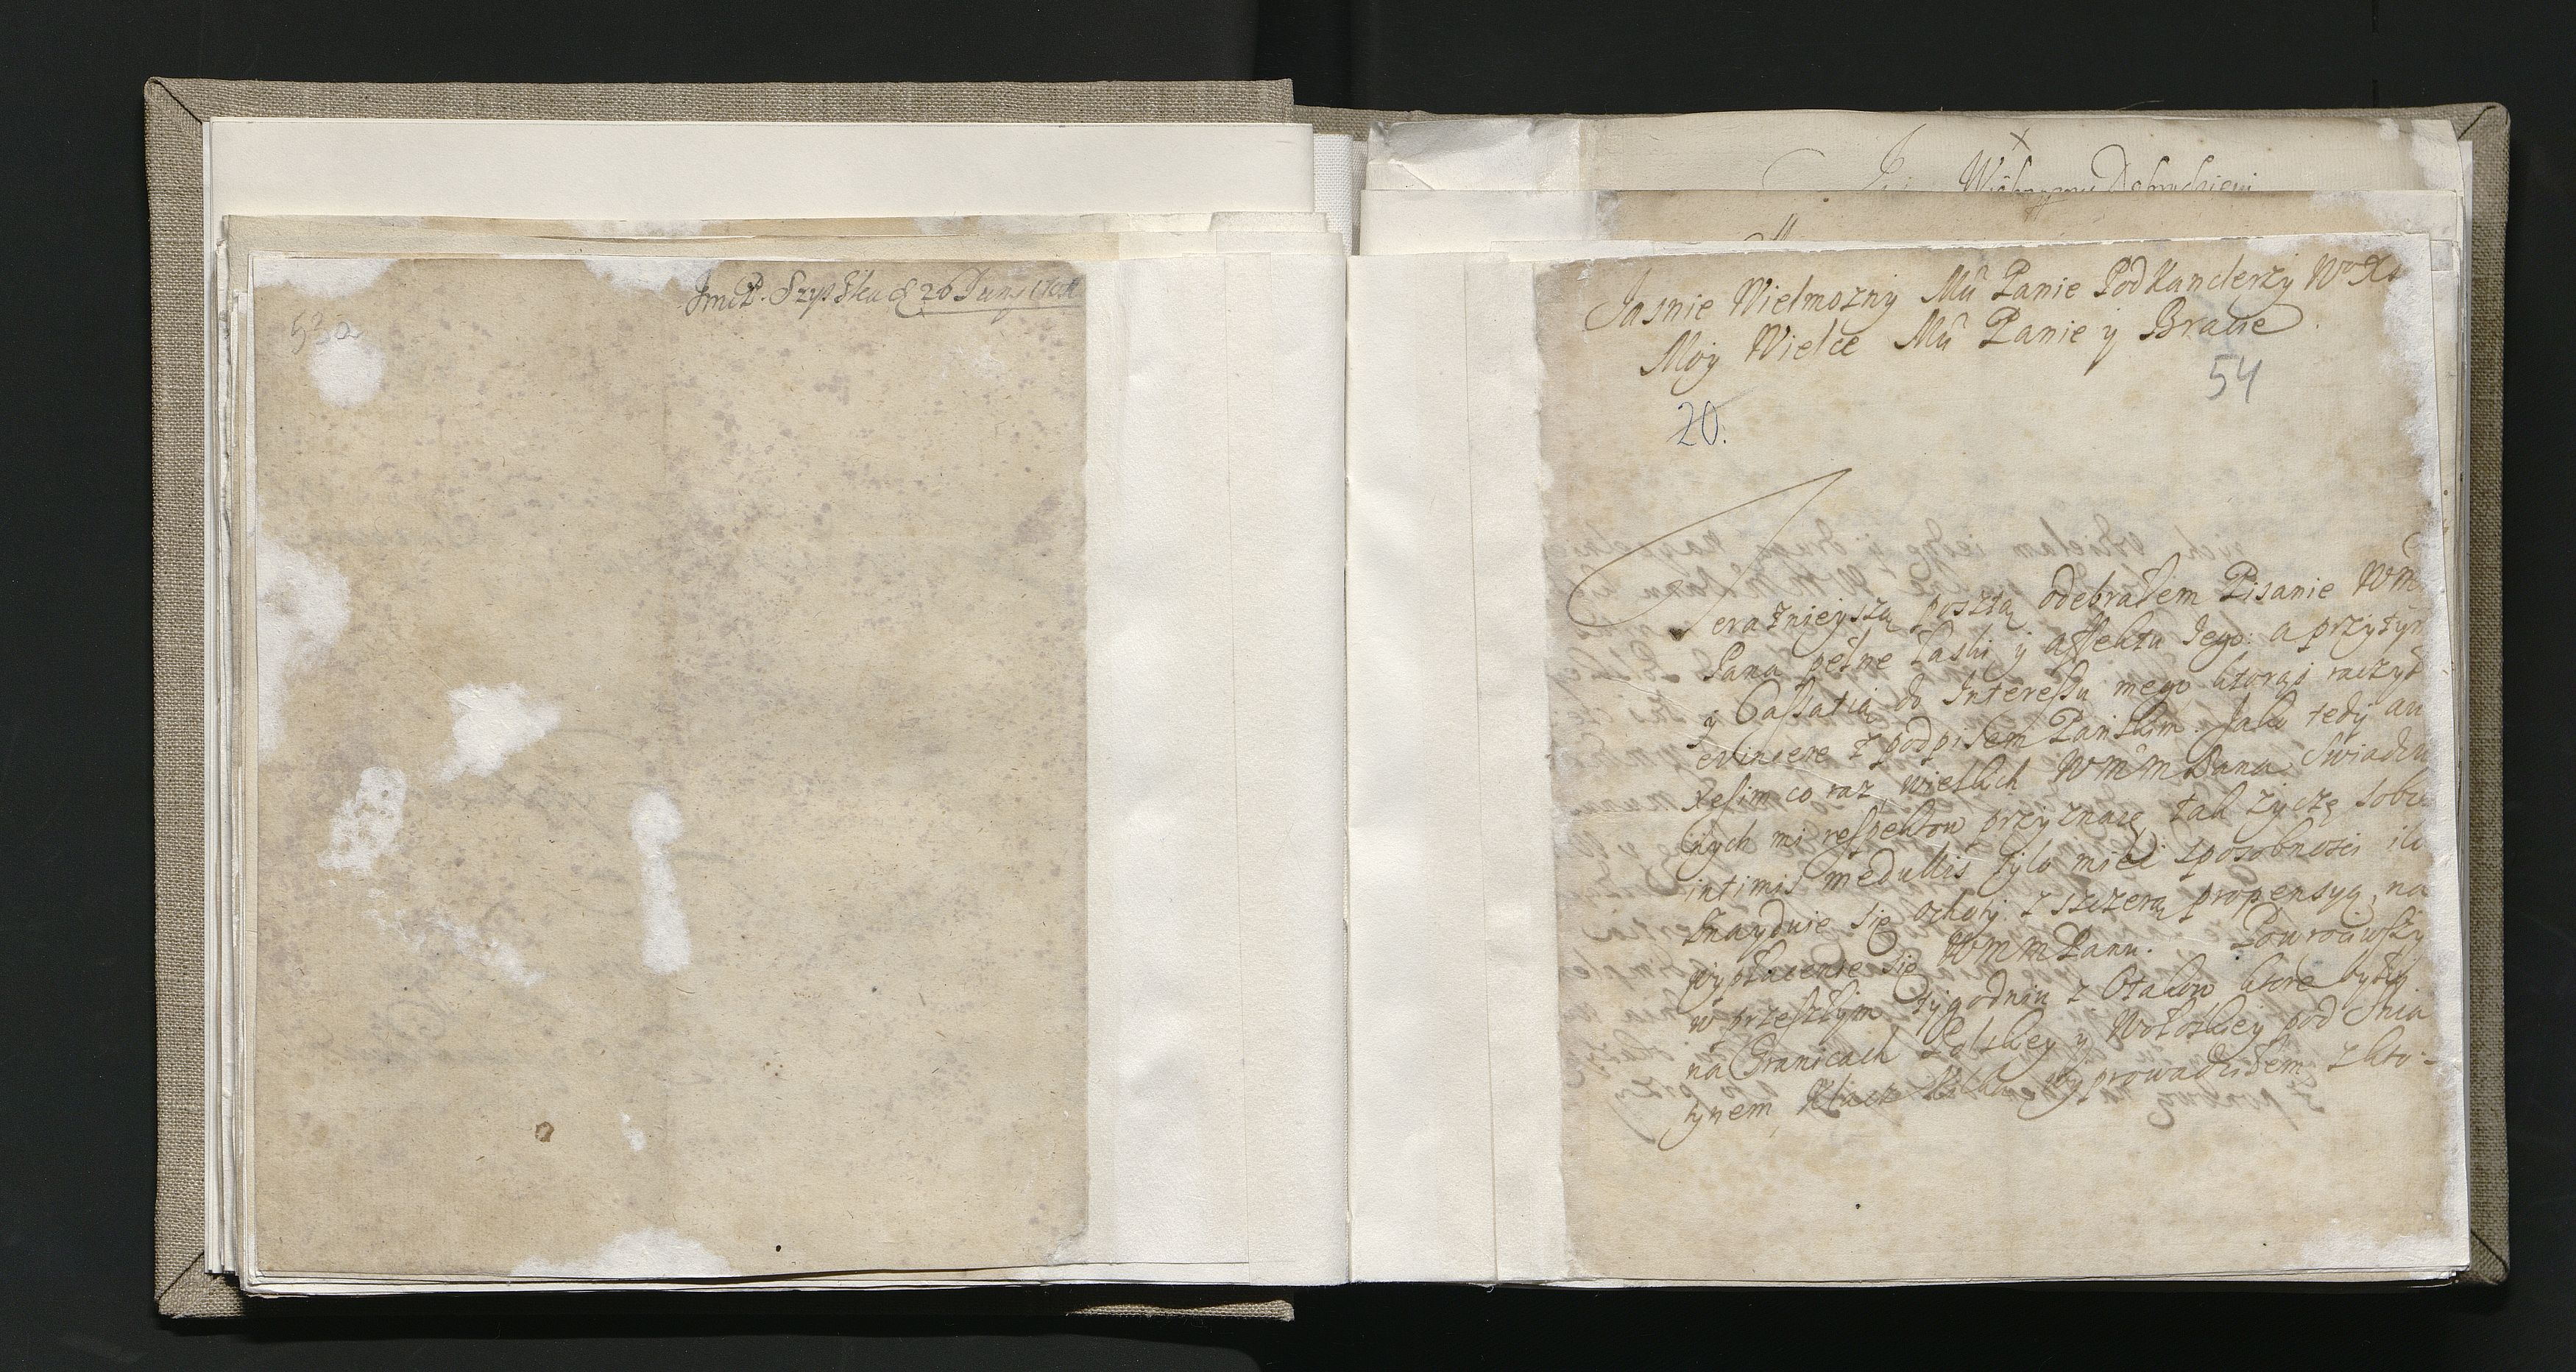 53a
Jmć P. Szyszka d 26 Juny
Wielmożny Dobrodzieiu
Jasnie Wielmozny Mû Panie Podkanclerzy W° Xs
Moy Wielce Mû Panie y Bracie.
54
20.
Terazniejszą posztą odebrałem Pisanie WM
Pana pełne łaski y affektu Jego: a przytym
y Cassatią do Interessu mego ktorąś raczył
evincere z podpisem Pańskim. Jako tedy au
xesim co raz wielkich WMmPana swiadczo
nych mi respektow przyznaię, tak życzę sobie
intimis medullis tylo mieć sposobności ile
znayduie się ochoty z szczerą propensyą, na
wypłacenie się WMmPanu. Powrociwszy
w przeszłym tygodniu z Otakow, ktore były
na Granicach Polskiey y Wołoskiey pod Snia
tynem, wyprowadziłem z kto-